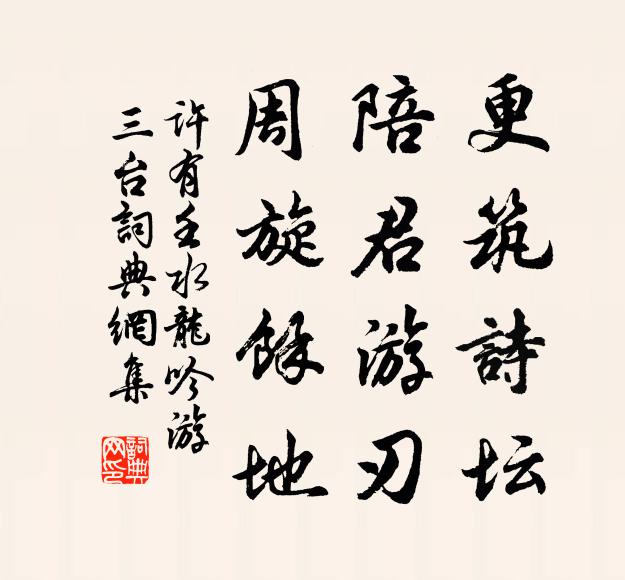 更筑詩坛
陪君游刃
周旋餘地
许有壬水龍吟游
三台詞典網集
詞典网印